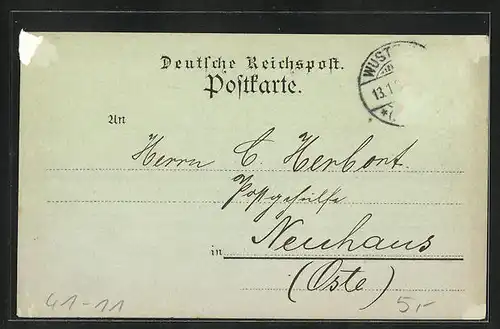 Deutsche Reichspost.
Postkarte.
WUST
13.1
An
Herrn C. Herbort.
Postgehülfe
in Neuhaus
(Oste)
41-11
5,-